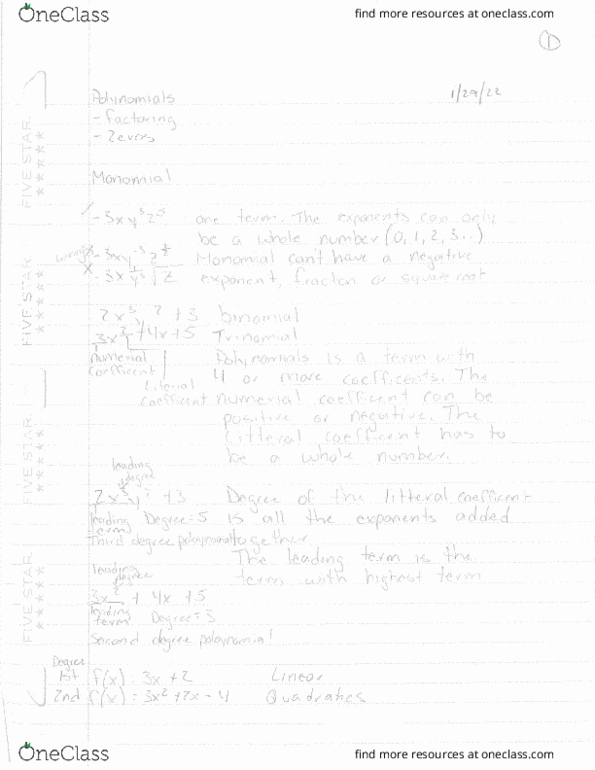 OneClass
find more resources at oneclass.com
1
1/29/22
Polynomials
- factoring
- Zeros
Monomial
✓ -3xy³z⁵ one term. The exponents can only
be a whole number (0, 1, 2, 3..)
wrong x -3xy⁻³z^½ Monomial can't have a negative
x -3x √z exponent, fraction or square root
2x³y² + 3 binomial
3x² + 4x + 5 Trinomial
Numerial Polynomials is a term with
coefficient
Literial 4 or more coefficents. The
coefficient numerial coefficient can be
positive or negative. The
Litteral coefficient has to
be a whole number.
leading
degree
2x³y² + 3 Degree of the litteral coefficent
leading Degree = 5 is all the exponents added
term
Third degree together.
The leading term is the
leading
degree term with highest term
3x² + 4x + 5
leading
term Degree = 3
Second degree
Degree
1st f(x) = 3x + 2 Linear
2nd f(x) = 3x² + 7x - 4 Quadratics
FIVE STAR
FIVE STAR
FIVE STAR
FIVE STAR
OneClass
find more resources at oneclass.com